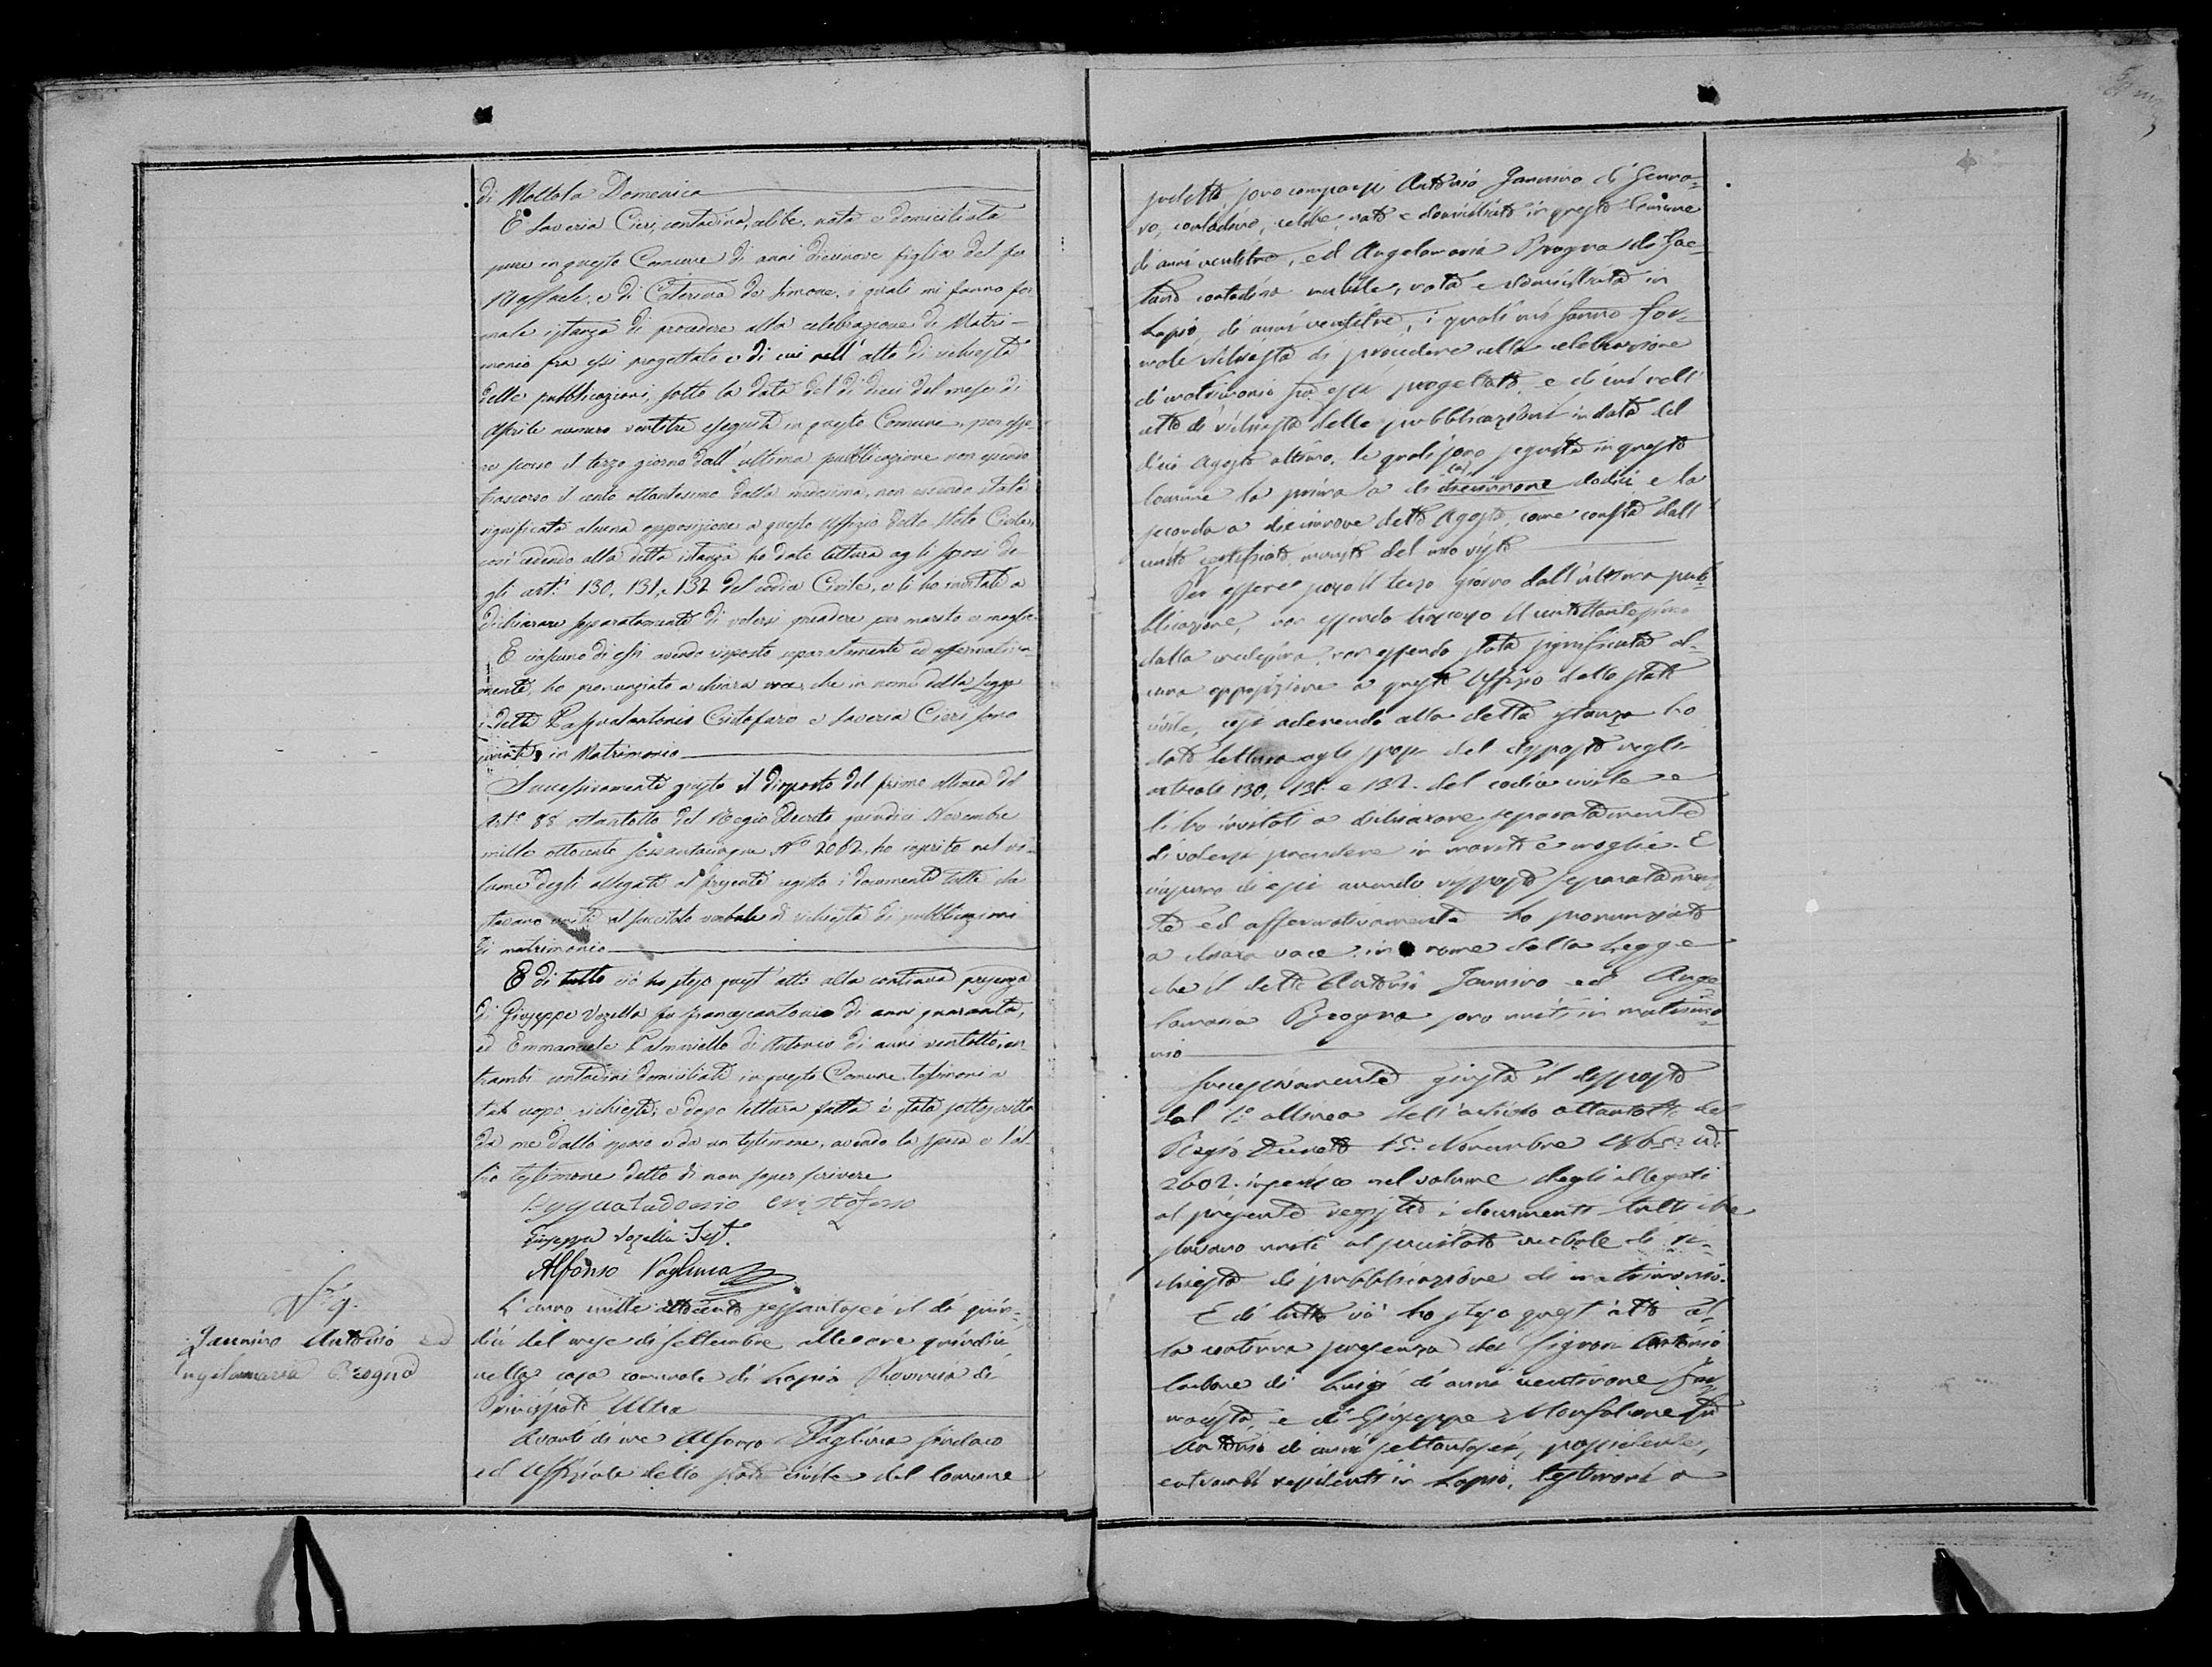 di Mottola Domenica
E Saveria Cieri, contadina, celibe, nata e domiciliata
pure in questo Comune di anni diecinove figlia del fu
Raffaele, e di Caterina de Simone, i quali mi fanno for
male istanza di procedere alla celebrazione di Matri-
monio fra essi progettato e di cui nell' atto di richiesta
delle pubblicazioni, sotto la data del di dieci del mese di
Aprile numero ventitre eseguita in questo Comune, per esse
re scorso il terzo giorno dall' ultima pubblicazione non essendo
trascorso il cento ottantesimo dalla medesima, non essendo stata
significata alcuna opposizione a questo Uffizio dello Stato Civile,
così aderendo alla detta istanza ho dato lettura agli sposi de
gli art.i 130, 131, e 132 del codice Civile, e li ho invitati a
dichiarare separatamente di volersi prendere per marito e moglie
E ciascuno di essi avendo risposto separatamente ed affermativa-
mente, ho pronunziato a chiara voce, che in nome della Legge
i detti Pasqualantonio Cristofaro e Saveria Cieri sono
uniti in Matrimonio
Successivamente giusta il disposto del primo alinea del
Art.o 88 ottantotto del Regio Decreto quindici Novembre
mille ottocento sessantacinque No 2602, ho inserito nel vo-
lume degli allegati al presente registro i documenti tutti che
stavano uniti al succitato verbale di richiesta di pubblicazioni
di matrimonio
E di tutto ciò ho steso quest' atto alla continua presenza
di Giuseppe Vozella fu Francescantonio di anni quaranta,
ed Emmanuele Palmariello di Antonio di anni ventotto, en
trambi contadini domiciliati in questo Comune, testimoni a
tal uopo richiesti; e dopo lettura fatta è stato sottoscritto
da me dallo sposo e da un testimone, avendo la sposa e l'al
tro testimone detto di non saper scrivere
cristofaro
Giuseppe Vozella Test.
Alfonso Vaglivia
N.o 9.
Jannino Antonio ed
Angelamaria Brogna
L' anno mille ottocento sessantasei il dì quin-
dici del mese di Settembre alle ore quindici
nella casa comunale di Lapio Provincia di
Principato Ultra
Avanti di me Alfonso Vaglivia Sindaco
ed Uffiziale dello stato civile del Comune
sudetto, sono comparsi Antonio Jannino di Genna-
ro, contadino, celibe, nato e domiciliato in questo Comune
di anni ventitre, ed Angelamaria Brogna di Gae-
tano contadina nubile, nata e domiciliata in
Lapio di anni ventitre, i quali mi fanno for-
male richiesta di procedere alla celebrazione
di matrimonio fra essi progettato e di cui nell'
atto di richiesta delle pubblicazioni in data del
dieci Agosto ultimo, le quali sono seguite in questo
Comune la prima a di diecinove dodici e la
seconda a diecinove detto Agosto, come consta dall'
unito certificato munito del mio visto
Per essere scorso il terzo giorno dall'ultima pub-
blicazione, non essendo trascorso il centottantesimo
dalla medesima, non essendo stata significata al-
cuna opposizione a questo Uffizio dello stato
civile, così aderendo alla detta istanza ho
dato lettura agli sposi del disposto negli
articoli 130, 131. e 132. del codice civile e
li ho invitati a dichiarare separatamente
di volersi prendere in marito e moglie. E
ciascuno di essi avendo risposto separatamen
te ed affermativamente ho pronunziato
a chiara voce in nome della Legge
che il detto Antonio Jannino ed Ange
lamaria Brogna sono uniti in matrimo-
nio
Successivamente giusta il disposto
dal 1o. allinea dell'articolo ottantotto del
Regio Decreto 15. Novembre 1865. n.
2602. inserisco nel volume degli allegati
al presente registro i documenti tutti che
stavano uniti al precitato verbale di ri-
chiesta di pubblicazione di matrimonio.
E di tutto ciò ho steso quest' atto al-
la continua presenza dei Signori Antonio
Carbone di Luigi di anni ventinove far
macista, e di Giuseppe Monfalcone fu
Antonio di anni settantasei, possidente,
entrambi residenti in Lapio, testimoni a